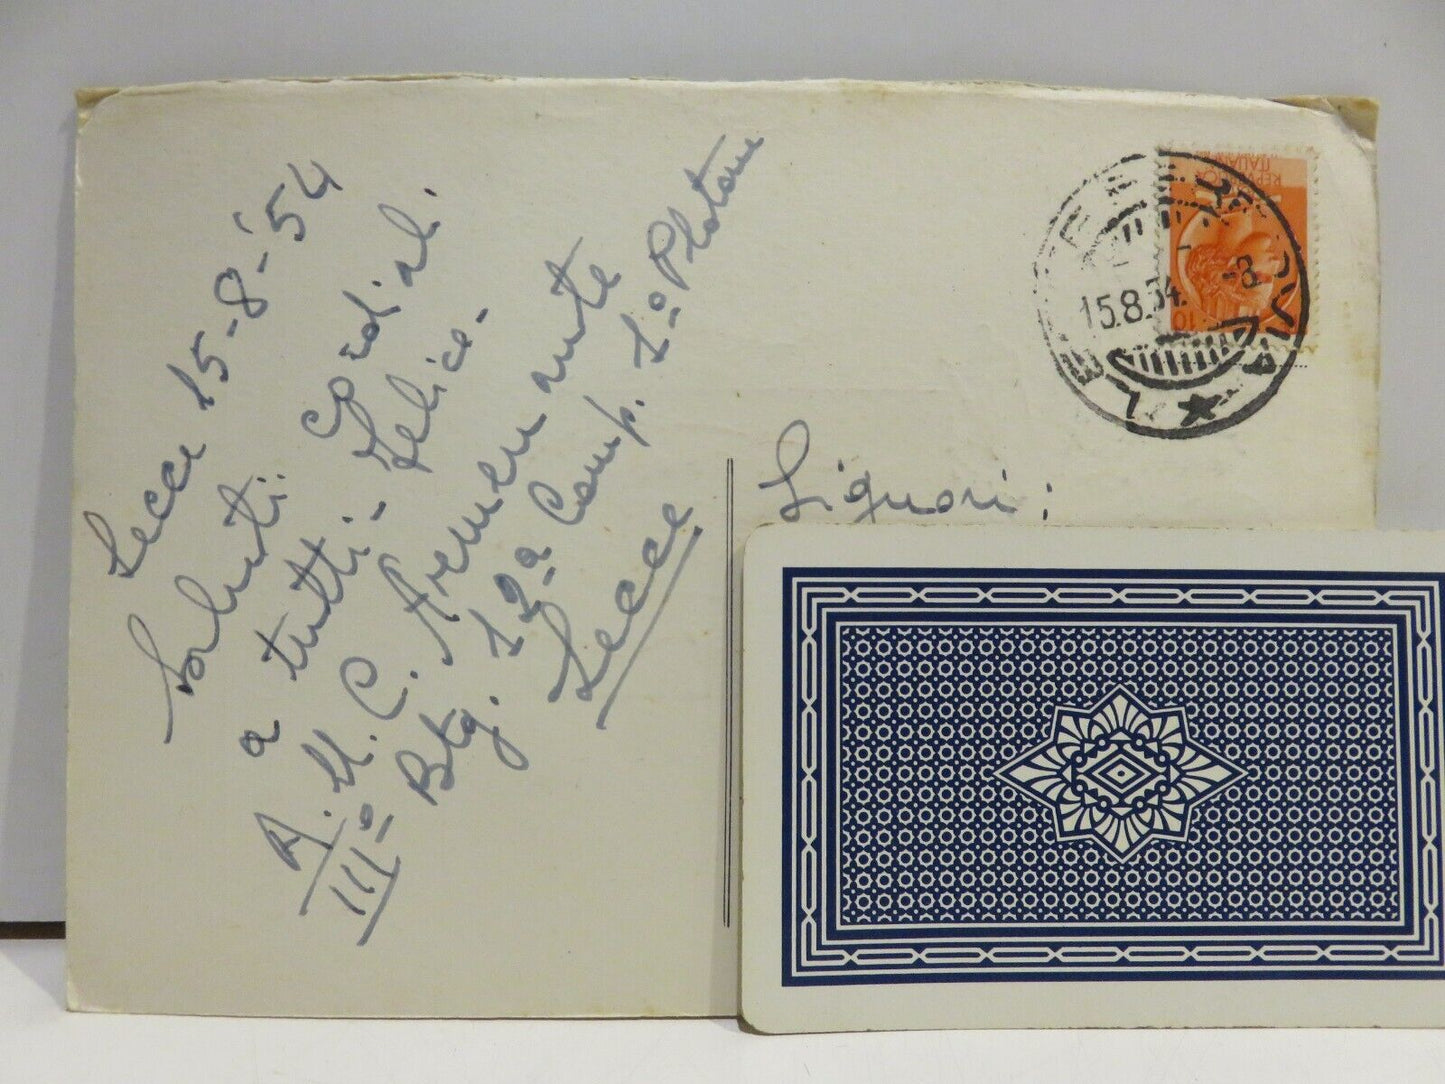 Lecce 15-8-'54
Saluti Cordiali
a tutti - Felice -
A. U. C.
III° Btg. 12ª Comp. 1° Plotone
Lecce
Liguori:
15.8.54.
REPUBBLICA
ITALIANA
10